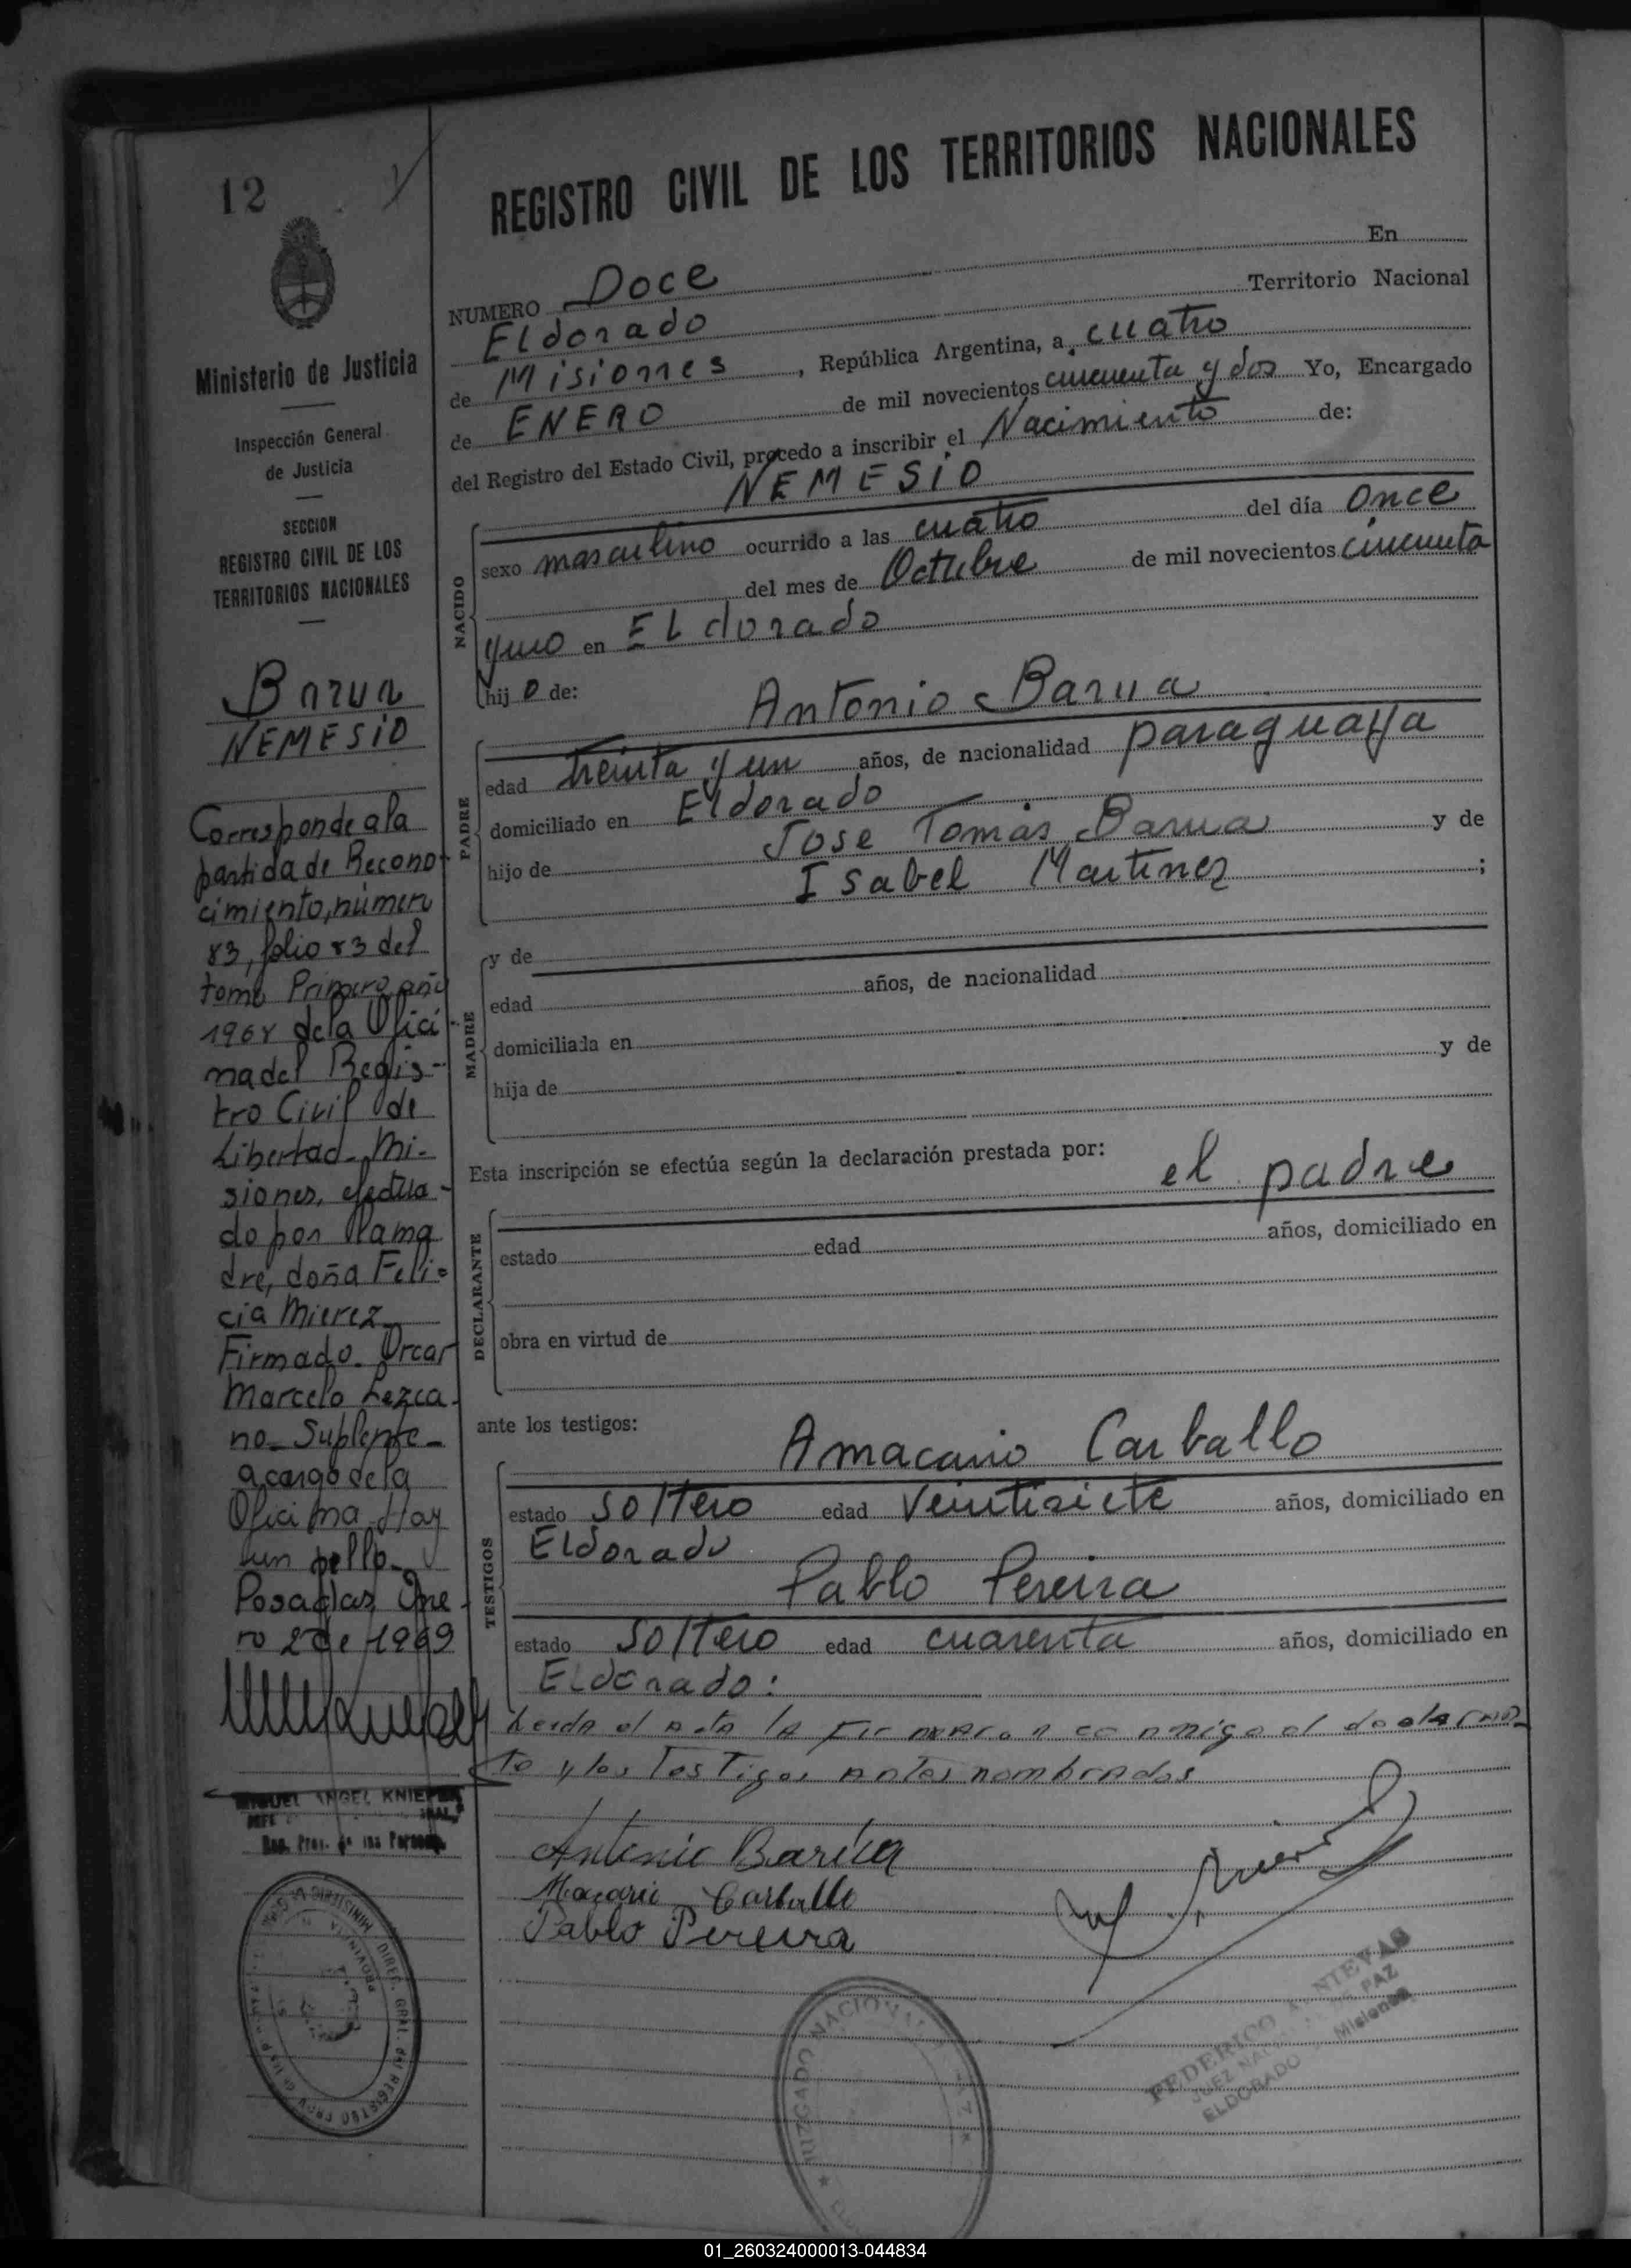 12
Ministerio de Justicia
Inspección General
de Justicia
SECCION
REGISTRO CIVIL DE LOS
TERRITORIOS NACIONALES
Barua
NEMESIO
Corresponde a la
partida de Recono-
cimiento, número
83, folio 83 del
tomo Primero, año
1968 de la Ofici-
na del Regis-
tro Civil de
Libertad - Mi-
siones, efectua-
do por la ma
dre, doña Feli-
cia Mierez
Firmado. Oscar
Marcelo Lezca-
no - Suplente -
a cargo de la
Oficina. Hay
un sello -
Posadas, Ene-
ro 2 de 1969
MIGUEL ANGEL KNIEPER
REGISTRO CIVIL DE LOS TERRITORIOS NACIONALES
NUMERO Doce En
Eldorado Territorio Nacional
de Misiones, República Argentina, a cuatro
de ENERO de mil novecientos cincuenta y dos Yo, Encargado
del Registro del Estado Civil, procedo a inscribir el Nacimiento de:
NEMESIO
NACIDO
sexo masculino ocurrido a las cuatro del día once
del mes de Octubre de mil novecientos cincuenta
y uno en Eldorado
hijo de:
Antonio Barua
PADRE
edad treinta y un años, de nacionalidad paraguaya
domiciliado en Eldorado
hijo de Jose Tomás Barua y de
Isabel Martinez ;
MADRE
y de
edad años, de nacionalidad
domiciliada en
hija de y de
Esta inscripción se efectúa según la declaración prestada por:
el padre
DECLARANTE
estado edad años, domiciliado en
obra en virtud de
ante los testigos:
Amacario Carballo
TESTIGOS
estado soltero edad veintisiete años, domiciliado en
Eldorado
Pablo Pereira
estado soltero edad cuarenta años, domiciliado en
Eldorado:
Leida el acta la firmaron conmigo el declaran-
te y los testigos antes nombrados
Antonio Barúa
Macario Carballo
Pablo Pereira
FEDERICO NIEVAS
JUEZ PAZ
ELDORADO Misiones
JUZGADO NACIONAL
01_260324000013-044834